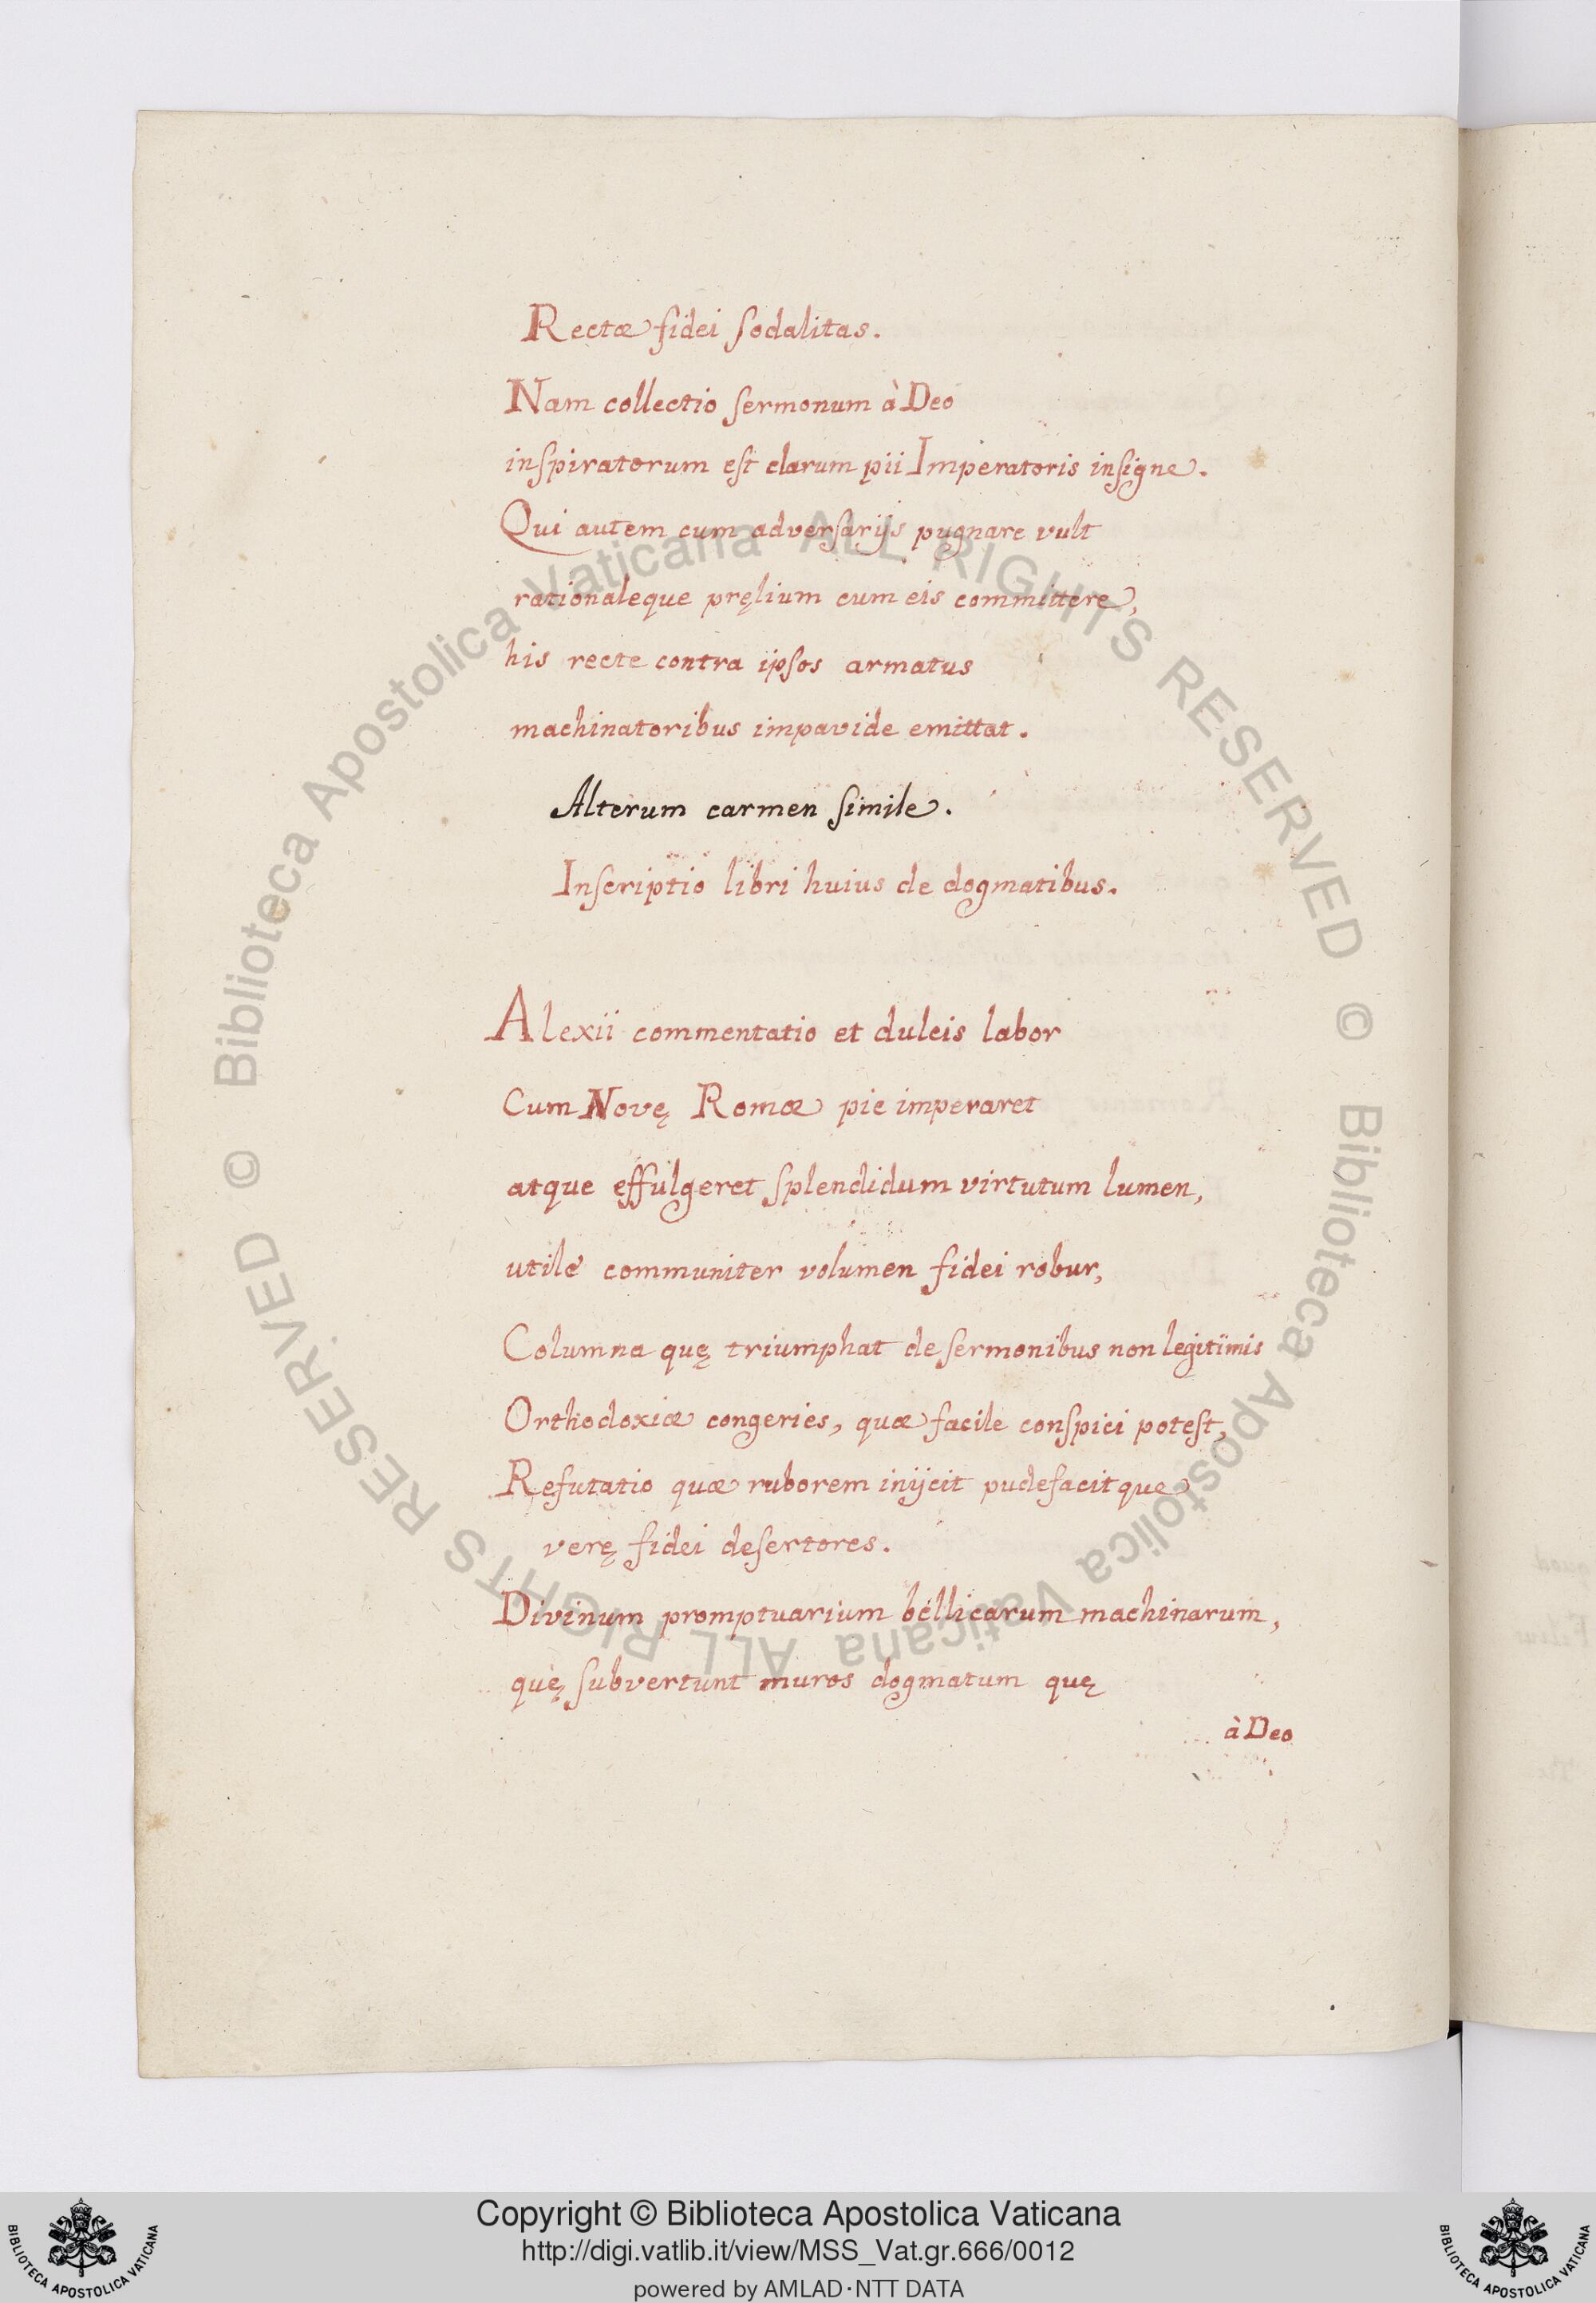 Rectæ fidei sodalitas.
Nam collectio sermonum à Deo
inspiratorum est clarum pii Imperatoris insigne.
Qui autem cum adversarijs pugnare vult
rationaleque pręlium cum eis committere,
his recte contra ipsos armatus
machinatoribus impavide emittat.
Alterum carmen simile.
Inscriptio libri huius de dogmatibus.
Alexii commentatio et dulcis labor
Cum Novę Romæ pie imperaret
atque effulgeret splendidum virtutum lumen,
utile communiter volumen fidei robur,
Columna quę triumphat de sermonibus non legitimis
Orthodoxiæ congeries, quæ facile conspici potest,
Refutatio quæ ruborem inijcit pudefacitque
verę fidei desertores.
Divinum promptuarium bellicarum machinarum,
quę subvertunt muros dogmatum quę
à Deo
© Biblioteca Apostolica Vaticana ALL RIGHTS RESERVED
© Biblioteca Apostolica Vaticana ALL RIGHTS RESERVED
Copyright © Biblioteca Apostolica Vaticana
http://digi.vatlib.it/view/MSS_Vat.gr.666/0012
powered by AMLAD·NTT DATA
BIBLIOTECA APOSTOLICA VATICANA
BIBLIOTECA APOSTOLICA VATICANA